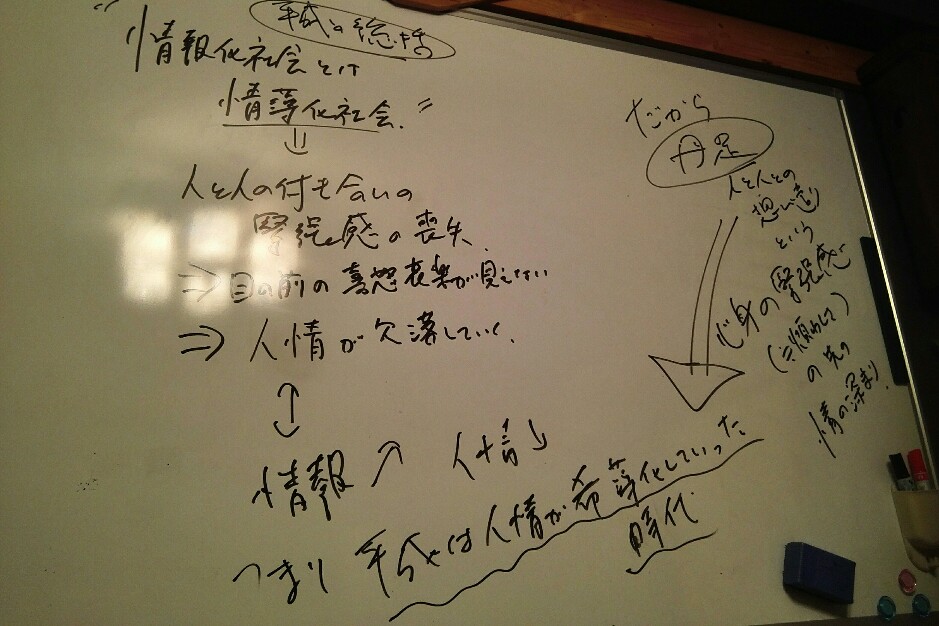 平成の総括
"情報化社会とは
情薄化社会."
⇓
人と人の付き合いの
緊張感の喪失.
⇒目の前の喜怒哀楽が見えない
⇒人情が欠落していく.
↕
情報↗ 人情↘
つまり 平成は人情が希薄化していった
時代
だから
丹足
人と人との
想い造り
という
心身の緊張感
の先の
情の深まり.